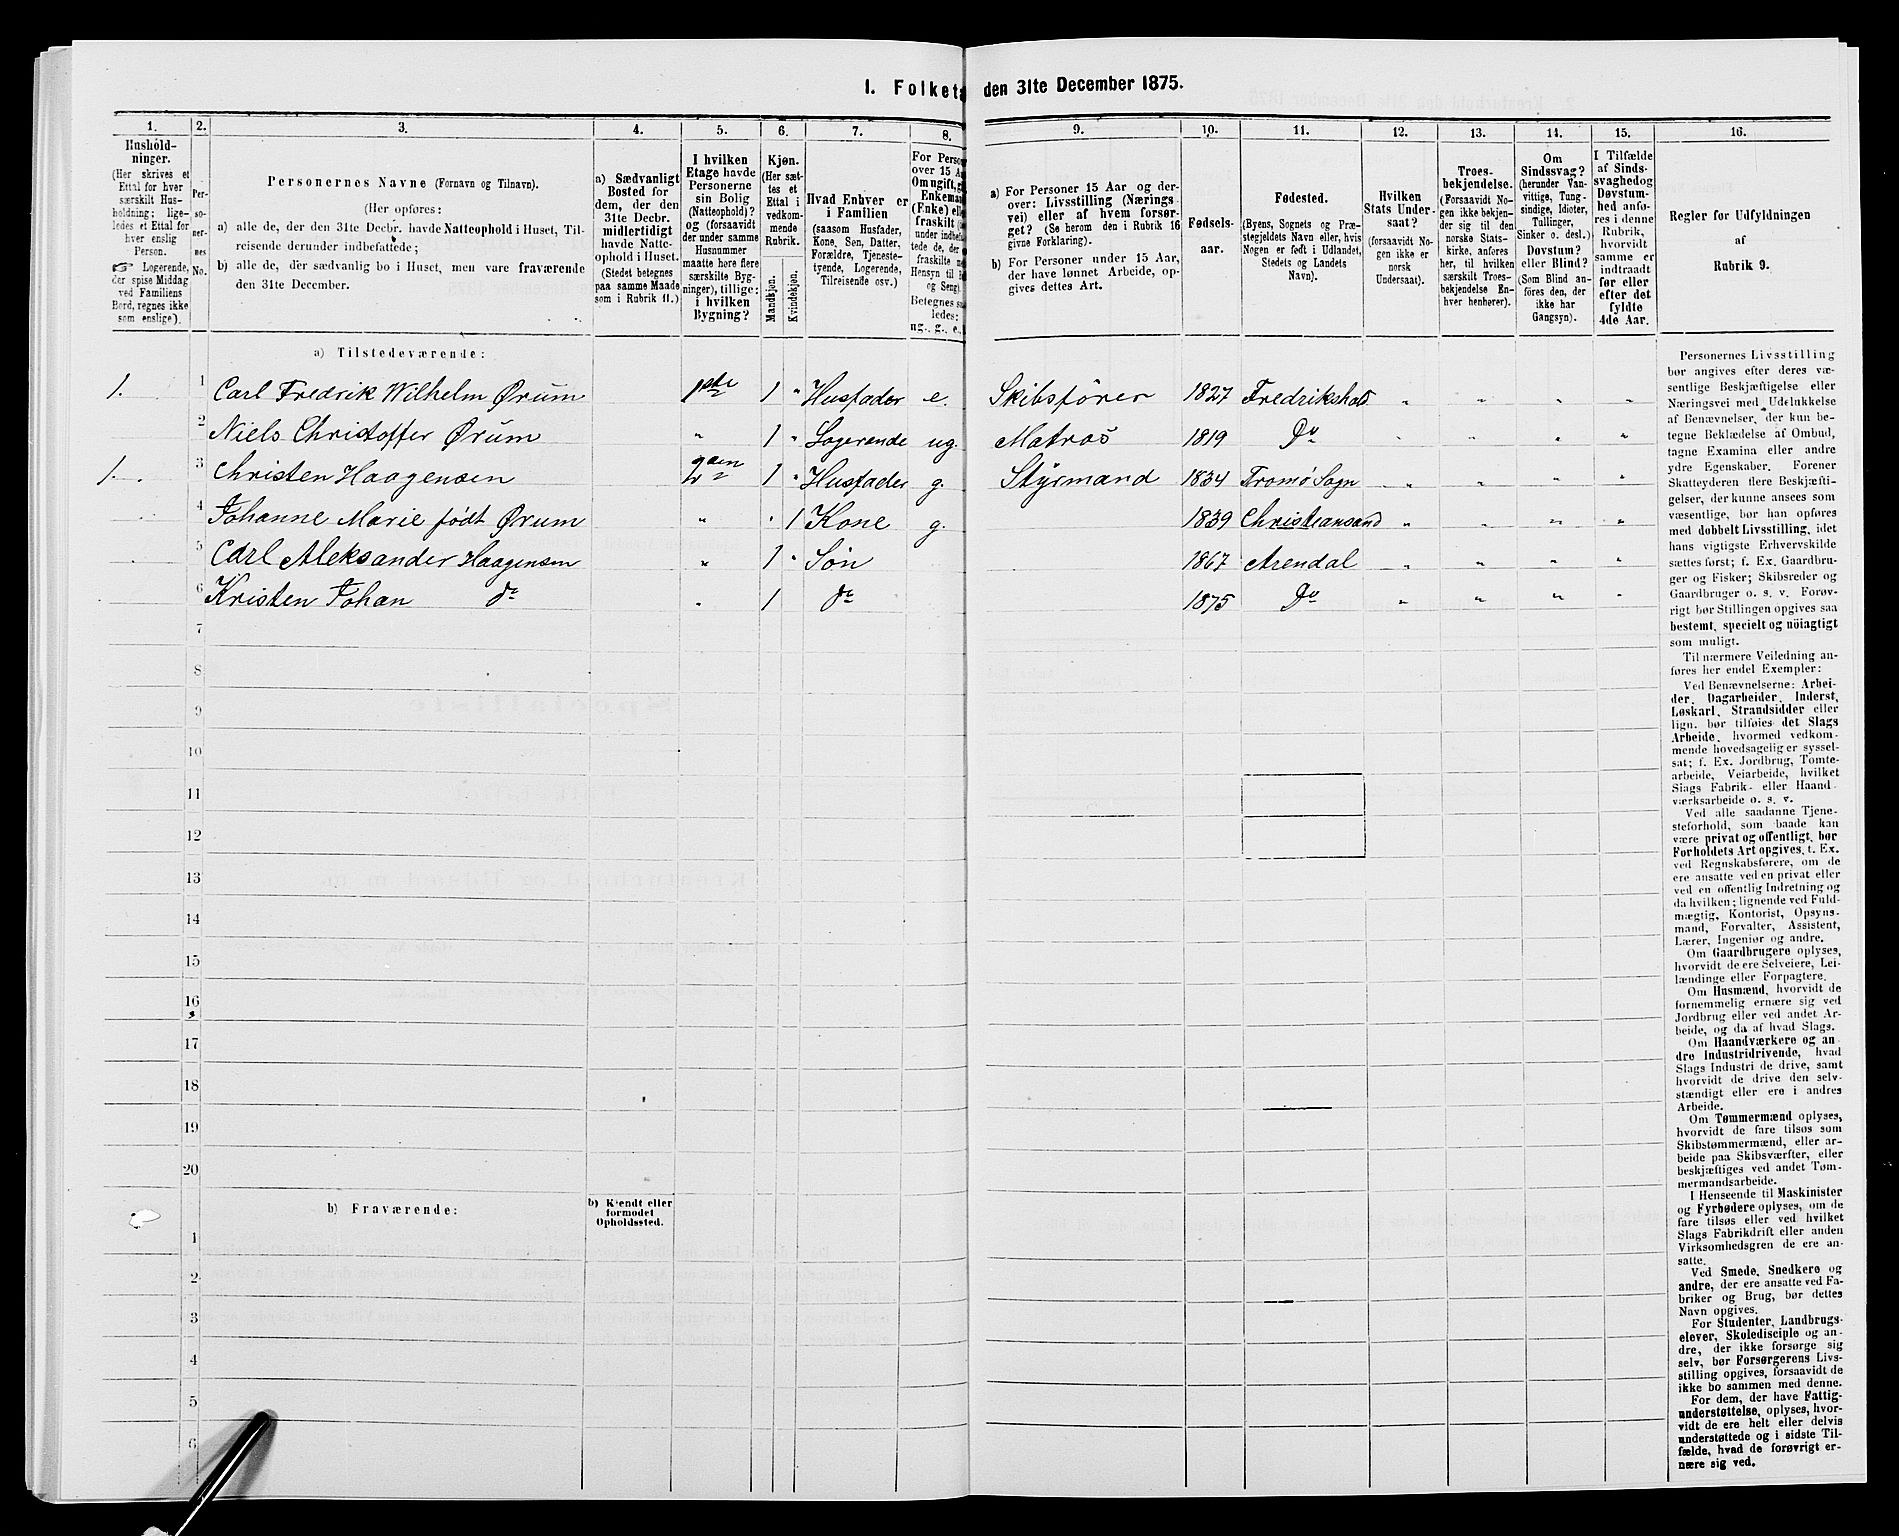 I. Folket
den 31te December 1875.
1.
2.
3.
4.
5.
6.
7.
8.
9.
10.
11.
12.
13.
14.
15.
16.
Hushold-
ninger.
(Her skrives et
Ettal for hver
særskilt Hus-
holdning; lige-
ledes et Ettal for
hver enslig
Person.
☞ Logerende,
der spise Middag
ved Familiens
Bord, regnes ikke
som enslige).
Per-
so-
ner-
nes
No.
Personernes Navne (Fornavn og Tilnavn).
(Her opføres:
a) alle de, der den 31te Decbr. havde Natteophold i Huset, Til-
reisende derunder indbefattede;
b) alle de, der sædvanlig bo i Huset, men vare fraværende
den 31te December.
a) Sædvanligt
Bosted for
dem, der den
31te Decbr.
midlertidigt
havde Natte-
ophold i Huset.
(Stedet betegnes
paa samme Maade
som i Rubrik 11.)
I hvilken
Etage havde
Personerne
sin Bolig
(Natteophold)?
og (forsaavidt
der under samme
Husnummer
maatte høre flere
særskilte Byg-
ninger), tillige:
i hvilken
Bygning?
Kjøn.
(Her sæt-
tes et
Ettal i
vedkom-
mende
Rubrik.
Mandkjøn.
Kvindekjøn.
Hvad Enhver er
i Familien
(saasom Husfader,
Kone, Søn, Datter,
Forældre, Tjeneste-
tyende, Logerende,
Tilreisende osv.)
For Perso
over 15 A
Om ugift, g
Enkema
(Enke) ell
fraskilt
under indbef
tede de, der
fraskilte
Hensyn til
og Seng).
Betegnes s
ledes:
ug., g., e.
a) For Personer 15 Aar og der-
over: Livsstilling (Nærings
vei) eller af hvem forsør-
get? (Se herom den i Rubrik 16
givne Forklaring).
b) For Personer under 15 Aar,
der have lønnet Arbeide, op-
gives dettes Art.
Fødsels-
aar.
Fødested.
(Byens, Sognets og Præ-
stegjeldets Navn eller, hvis
Nogen er født i Udlandet,
Stedets og Landets
Navn).
Hvilken
Stats Under-
saat?
(forsaavidt No-
gen ikke er
norsk
Undersaat).
Troes-
bekjendelse.
(Forsaavidt No-
gen ikke bekjen-
der sig til den
norske Stats-
kirke, anføres
her, til hvilken
særskilt Troes-
bekjendelse En-
hver henhører).
Om
Sindssvag?
(herunder Van-
vittige, Tung-
sindige, Idioter,
Tullinger,
Sinker o. desl.)
Døvstum?
eller Blind?
(Som Blind an-
føres den, der
ikke har
Gangsyn).
I Tilfælde
af Sinds-
svaghed og
Døvstum-
hed anfø-
res i denne
Rubrik,
hvorvidt
samme er
indtraadt
før eller
efter det
fyldte
4de Aar.
Regler for Udfyldningen
af
Rubrik 9.
a) Tilstedeværende:
1. 1 Carl Fredrik Wilhelm Ørum 1ste 1 " Husfader e. Skibsfører 1827 Fredrikshald " " " "
2 Niels Christoffer Ørum " 1 " Logerende ug. Matros 1819 Do " " " "
1. 3 Christen Haagensen 2den 1 " Husfader g. Styrmand 1834 Tromø Sogn " " " "
4 Johanne Marie født Ørum " " 1 Kone g. 1839 Christiansand " " " "
5 Carl Aleksander Haagensen " 1 " Søn 1867 Arendal " " " "
6 Kristen Johan do " 1 do 1875 Do " " " "
7
8
9
10
11
12
13
14
15
16
17
18
19
20
b) Fraværende:
b) Kjendt eller
formodet
Opholdssted.
1
2
3
4
5
6
Personernes Livsstilling
bør angives efter deres væ-
sentlige Beskjæftigelse eller
Næringsvei med Udelukkelse
af Benævnelser, der kun be-
tegne Beklædelse af Ombud,
tagne Examina eller andre
ydre Egenskaber. Forener
Skatteyderen flere Beskjæfti-
gelser, der kunne ansees som
væsentlige, bør han opføres
med dobbelt Livsstilling, idet
hans vigtigste Erhvervskilde
sættes først; f. Ex. Gaardbru-
ger og Fisker; Skibsreder og
Gaardbruger o. s. v. Forøv-
rigt bør Stillingen opgives saa
bestemt, specielt og nöiagtigt
som muligt.
Til nærmere Veiledning an-
føres her endel Exempler:
Ved Benævnelserne: Arbei-
der, Dagarbeider, Inderst,
Løskarl, Strandsidder eller
lign. bør tilføies det Slags
Arbeide, hvormed vedkom-
mende hovedsagelig er syssel-
sat; f. Ex. Jordbrug, Tomte-
arbeide, Veiarbeide, hvilket
Slags Fabrik- eller Haand-
værksarbeide o. s. v.
Ved alle saadanne Tjene-
steforhold, som baade kan
være privat og offentligt, bør
Forholdets Art opgives, f. Ex.
ved Regnskabsførere, om de
ere ansatte ved en privat eller
ved en offentlig Indretning og
da hvilken; lignende ved Fuld-
mægtig, Kontorist, Opsyns-
mand, Forvalter, Assistent,
Lærer, Ingeniør og andre.
Om Gaardbrugere oplyses,
hvorvidt de ere Selveiere, Lei-
lændinge eller Forpagtere.
Om Husmænd, hvorvidt de
fornemmelig ernære sig ved
Jordbrug eller ved andet Ar-
beide, og da af hvad Slags.
Om Haandværkere og an
dre Industridrivende, hvad
Slags Industri de drive, samt
hvorvidt de drive den selv-
stændigt eller ere i andres
Arbeide.
Om Tømmermænd oplyses,
hvorvidt de fare tilsøs som
Skibstømmermænd, eller ar-
beide paa Skibsværfter, eller
beskjæftiges ved andet Tøm-
mermandsarbeide.
I Henseende til Maskinister
og Fyrbødere oplyses, om de
fare tilsøs eller ved hvilket
Slags Fabrikdrift eller anden
Virksomhedsgren de ere an-
satte.
Ved Smede, Snedkere og
andre, der ere ansatte ved Fa-
briker og Brug, bør dettes
Navn opgives.
For Studenter, Landbrugs-
elever, Skoledisciple og an-
dre, der ikke forsørge sig
selv, bør Forsørgerens Livs-
stilling opgives, forsaavidt de
ikke bo sammen med denne.
For dem, der have Fattig-
understøttelse, oplyses, hvor-
vidt de ere helt eller delvis
understøttede og i sidste Til-
fælde, hvad de forøvrigt er-
nære sig ved.